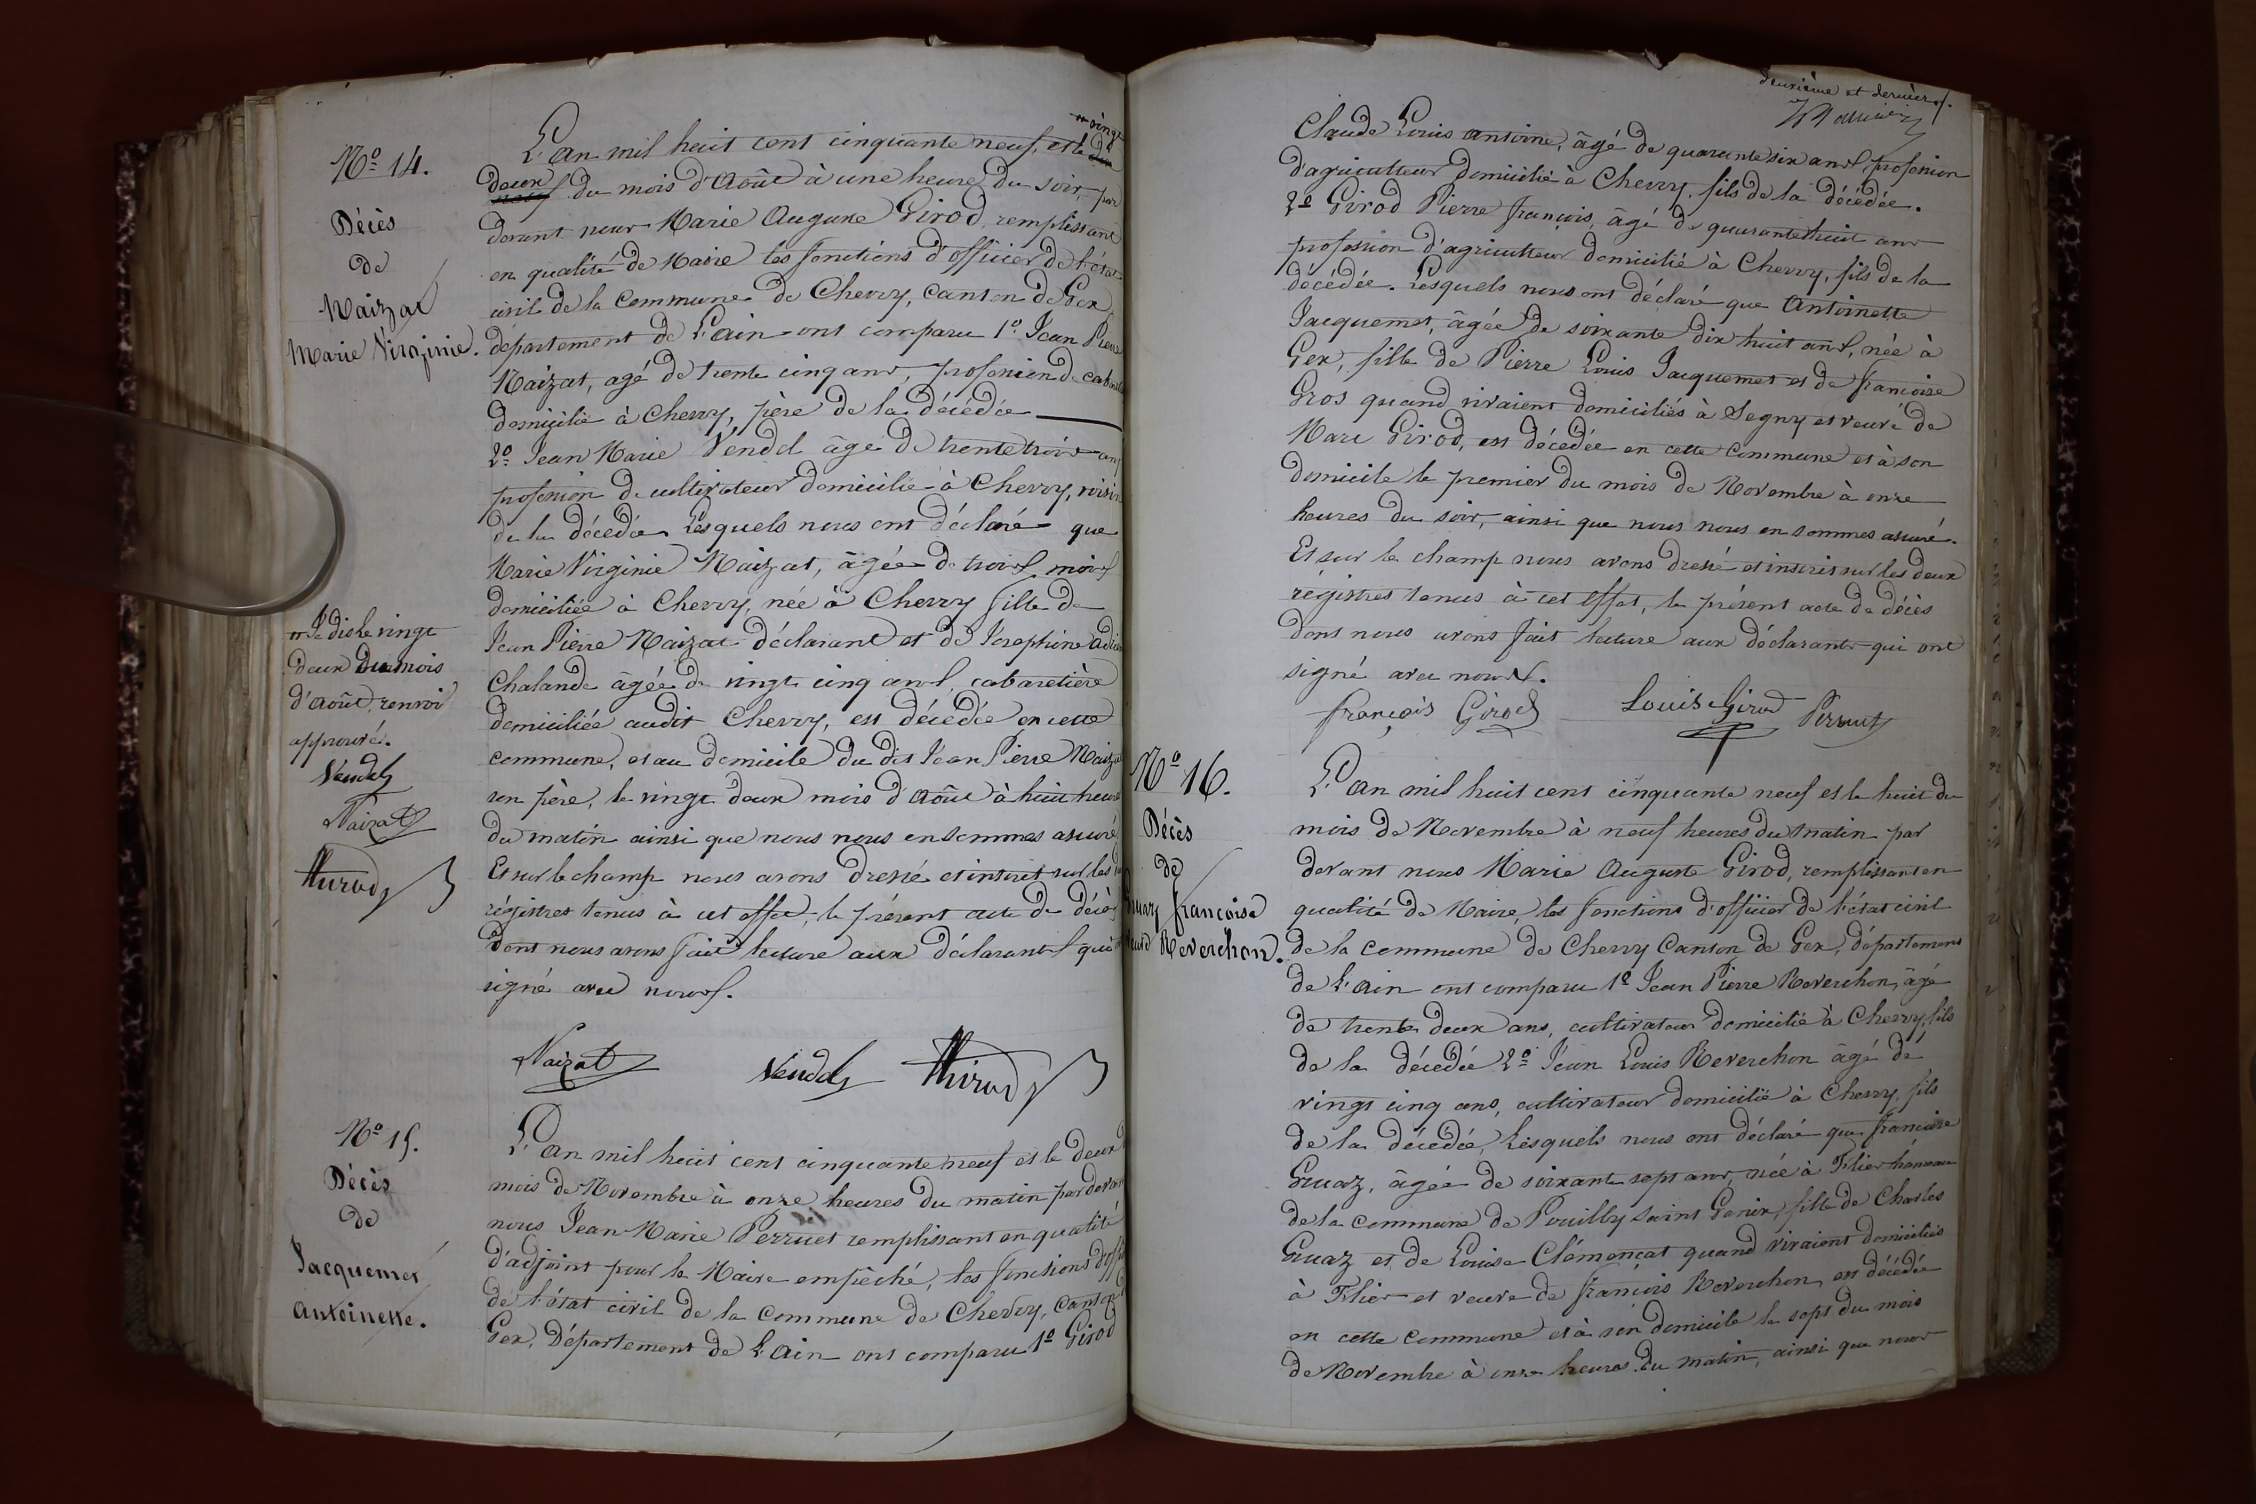 Nº 14.
Décès
de
Naizat
Marie Virginie.
L'an mil huit cent cinquante neuf, et le dix " vingt
neuf deux du mois d'Août à une heure du soir, par
devant nous Marie Auguste Girod, remplissant
en qualité de Maire les fonctions d'officier de l'état
civil de la Commune de Chevry, canton de Gex,
département de l'Ain ont comparu 1º Jean Pierre
Naizat, agé de trente cinq ans, profession de
domicilié à Chevry, père de la décédée
2º Jean Marie Vendel âgé de trente trois ans
profession de cultivateur domicilié à Chevry, voisin
de la décédée. Lesquels nous ont déclaré que
Marie Virginie Naizat, âgée de trois mois
domiciliée à Chevry, née à Chevry fille de
Jean Pierre Naizat déclarant et de Josephine
Chalande âgée de vingt cinq ans, cabaretière
domiciliée audit Chevry, est décédée en cette
commune, et au domicile du dit Jean Pierre Naizat
son père, le vingt deux mois d'Août à huit heures
du matin ainsi que nous nous en sommes assuré
Et sur le champ nous avons dressé et inscrit sur les
régistres tenus à cet effet, le présent acte de décès
dont nous avons fait lecture aux déclarants qui
signé avec nous.
" Je dis le vingt
deux du mois
d'Août, renvoi
approuvé.
Vendel
Naizat
Girod
Naizat Vendel Girod
Nº 15.
Décès
de
Jacquemet
Antoinette.
L'an mil huit cent cinquante neuf et le deux
mois de Novembre à onze heures du matin par devant
nous Jean Marie Perruet remplissant en qualité
d'adjoint pour le Maire empêché, les fonctions
de l'état civil de la commune de Chevry, canton
Gex, Département de l'Ain ont comparu 1º Girod
deuxième et dernier
Claude Louis Antoine, âgé de quarante six ans, profession
d'agriculteur domicilié à Chevry, fils de la décédée.
2º Girod Pierre François, âgé de quarante huit ans
profession d'agriculteur domicilié à Chevry, fils de la
décédée. Lesquels nous ont déclaré que Antoinette
Jacquemet, âgée de soixante dix huit ans, née à
Gex, fille de Pierre Louis Jacquemet et de Françoise
Gros quand vivaient domiciliés à Segny et veuve de
Marc Girod, est décédée en cette Commune et à son
domicile le premier du mois de Novembre à onze
heures du soir, ainsi que nous nous en sommes assuré.
Et sur le champ nous avons dressé et inscrit sur les deux
régistres tenus à cet effet, le présent acte de décès
dont nous avons fait lecture aux déclarants qui ont
signé avec nous.
françois Girod Louis Girod Perruet
Nº 16.
Décès
de
Gruaz françoise
Reverchon.
L'an mil huit cent cinquante neuf et le huit du
mois de Novembre à neuf heures du matin par
devant nous Marie Auguste Girod, remplissant en
qualité de Maire, les fonctions d'officier de l'état civil
de la Commune de Chevry Canton de Gex, département
de l'Ain ont comparu 1º Jean Pierre Reverchon, âgé
de trente deux ans, cultivateur domicilié à Chevry, fils
de la décédée 2º Jean Louis Reverchon âgé de
vingt cinq ans, cultivateur domicilié à Chevry, fils
de la décédée, Lesquels nous ont déclaré que françoise
Gruaz, âgée de soixante sept ans, née à Flier hameau
de la commune de Pouilly Saint Genix, fille de Charles
Gruaz et de Louise Clémençat quand vivaient domiciliés
à Flier et veuve de françois Reverchon, est décédée
en cette Commune et à son domicile le sept du mois
de Novembre à onze heures du matin, ainsi que nous